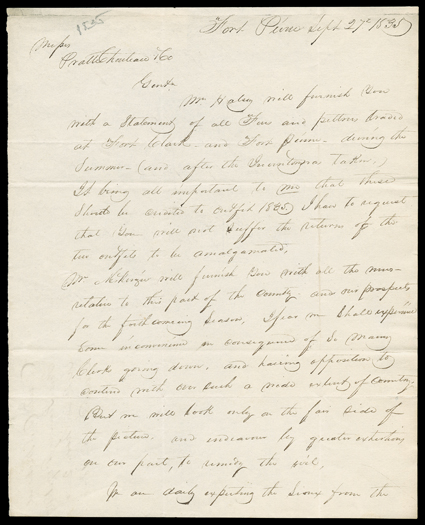 1835
Fort Pierre Sept 27th 1835
Messrs
Pratte Chouteau & Co
Gents
Mr Halsey will furnish You
with a Statement of all Furs and peltries traded
at Fort Clark and Fort Pierre during the
Summer (and after the Inventories taken,)
It being all important to me that these
Should be credited to outfit 1835 I have to request
that You will not Suffer the returns of the
two outfits to be amalgamated.
Mr McKenzie will furnish You with all the news
relative to this part of the Country and our prospects
for the forthcoming Season, I fear we Shall experience
Some inconvenience in consequence of So Many
Clerks going down, and having opposition to
contend with over such a wide extent of Country.
But we will look only on the fair Side of
the picture, and endeavour by greater exertions
on our part to remedy the evil.
We are daily expecting the Sioux from the